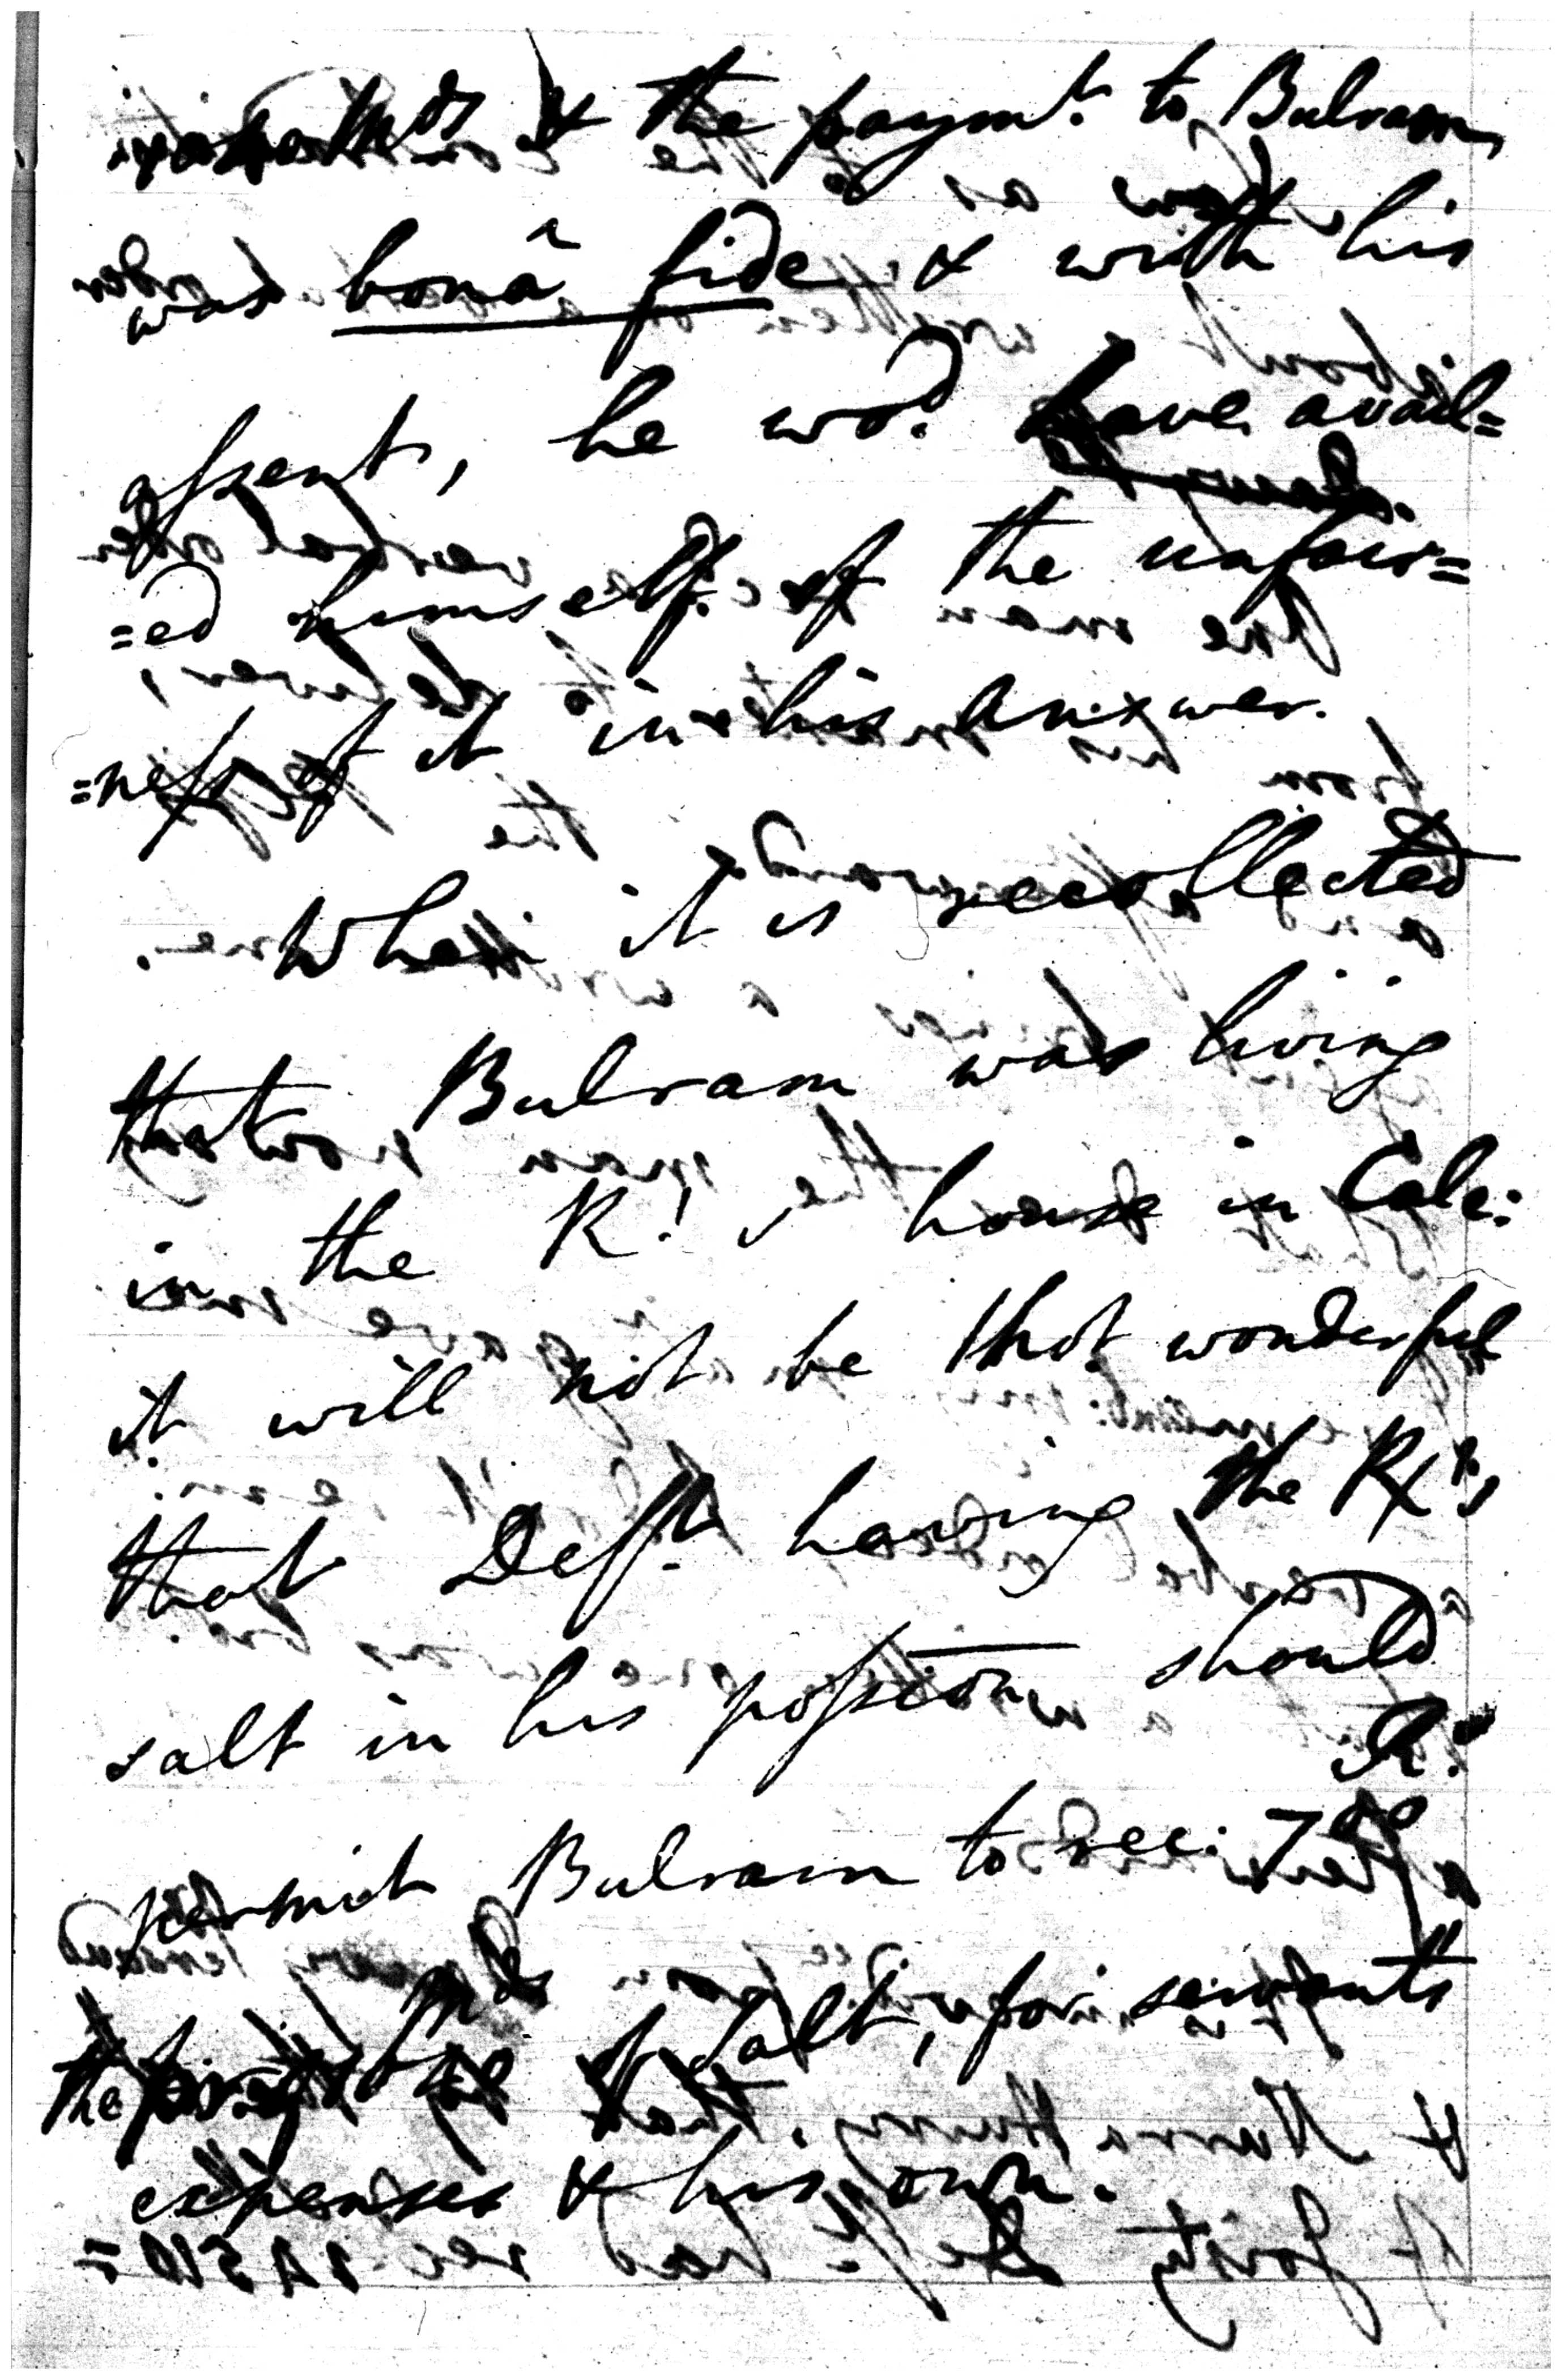 & the paym.t to Bulram,
was bonâ fide & with his
assent, he wo.d have avail=
=ed himself of the unfair=
=ness of it in his answer.
When it is recollected
that Bulram was living
in the R.'s house in Calc:
it will not be that wonderful
that Def.t having the
salt in his possion should
R.s
permit Bulram to rec. 700
the of salt, for servants
expenses & his own.